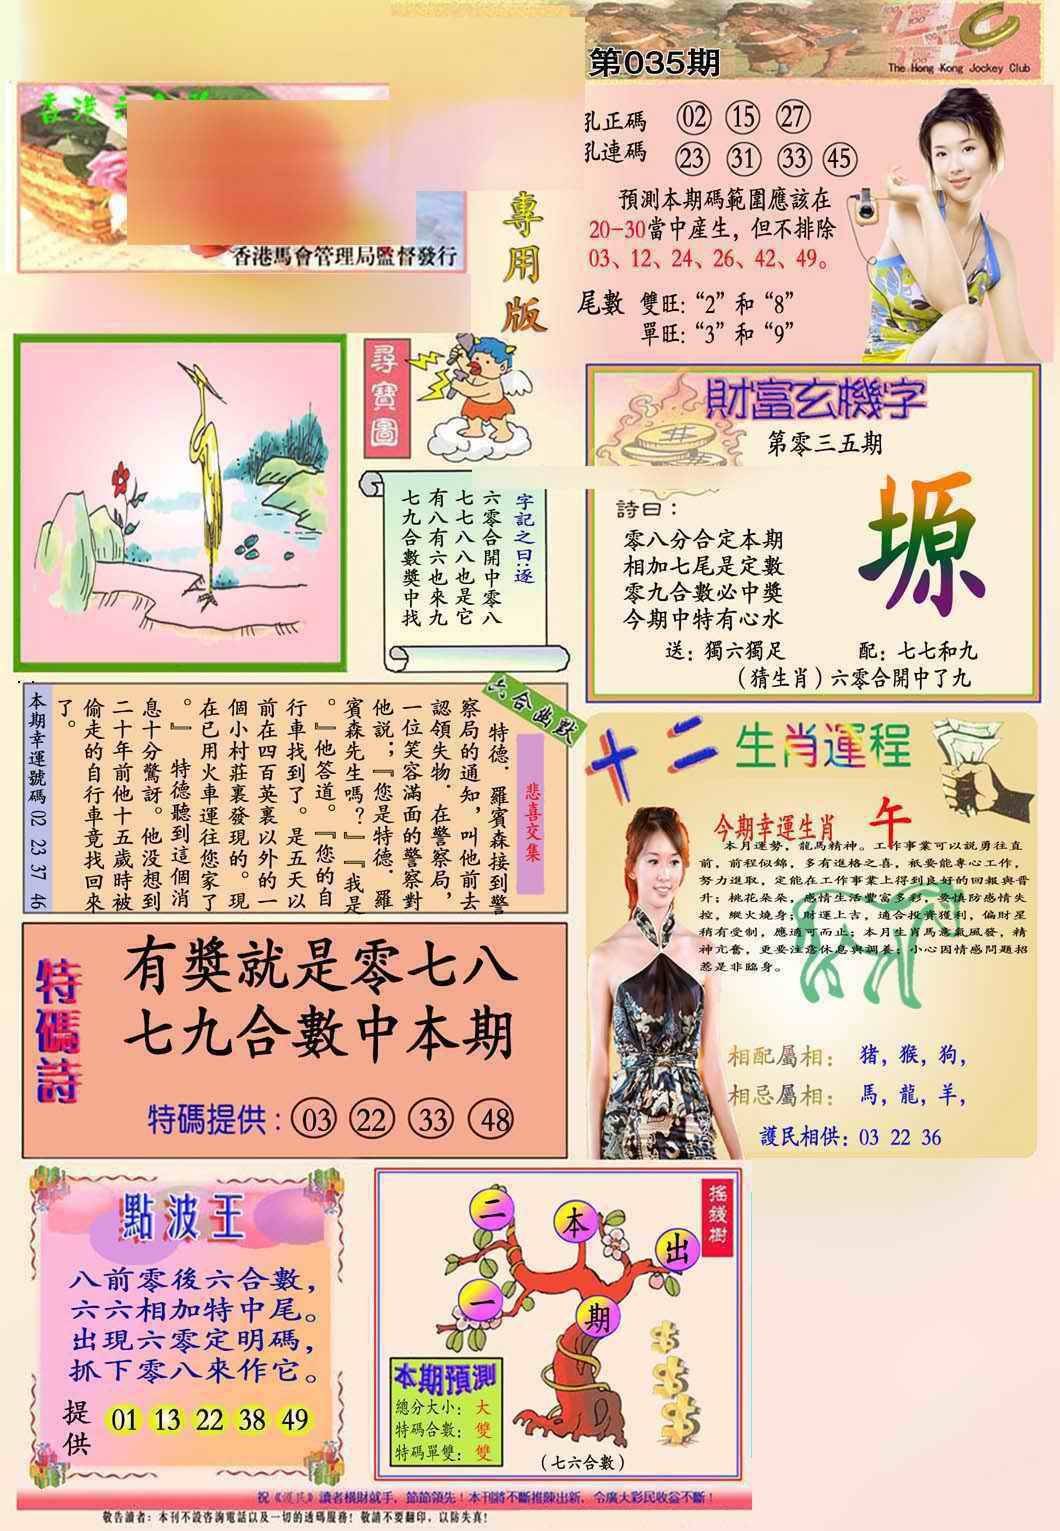 第035期
The Hong Kong Jockey Club
香港六合
香港馬會管理局監督發行
專用版
孔正碼 02 15 27
孔連碼 23 31 33 45
預測本期碼範圍應該在
20-30當中産生，但不排除
03、12、24、26、42、49。
尾數 雙旺：“2”和“8”
單旺：“3”和“9”
尋寶圖
字記之曰：逐
六零合開中零八
七七八八也是它
有八有六也來九
七九合數獎中找
財富玄機字
第零三五期
詩曰：
零八分合定本期
相加七尾是定數
零九合數必中獎
今期中特有心水
塬
送：獨六獨足 配：七七和九
（猜生肖）六零合開中了九
六合幽默
悲喜交集
特德．羅賓森接到警
察局的通知，叫他前去
認領失物．在警察局，
一位笑容滿面的警察對
他説；『您是特德．羅
賓森先生嗎？』『我是
。』他答道。『您的自
行車找到了。是五天以
前在四百英裏以外的一
個小村莊裏發現的。現
在已用火車運往您家了
。』　特德聽到這個消
息十分驚訝。他没想到
二十年前他十五歲時被
偷走的自行車竟找回來
了。
本期幸運號碼 02 23 37 46
十二生肖運程
今期幸運生肖 午
本月運勢，龍馬精神。工作事業可以説勇往直
前，前程似錦，多有進格之喜，祇要能專心工作，
努力進取，定能在工作事業上得到良好的回報與晉
升；桃花朵朵，感情生活豐富多彩，要慎防感情失
控，縱火燒身；財運上吉，適合投資獲利，偏財星
稍有受制，應適可而止；本月生肖馬意氣風發，精
神亢奮，更要注意休息與調養；小心因情感問題招
惹是非臨身。
相配屬相： 猪，猴，狗，
相忌屬相： 馬，龍，羊，
護民相供：03 22 36
特碼詩
有獎就是零七八
七九合數中本期
特碼提供：03 22 33 48
點波王
八前零後六合數，
六六相加特中尾。
出現六零定明碼，
抓下零八來作它。
提供 01 13 22 38 49
搖錢樹
二
本
出
一
期
本期預測
總分大小：大
特碼合數：雙
特碼單雙：雙
（七六合數）
祝《護民》讀者橫財就手，節節領先！本刊將不斷推陳出新，令廣大彩民收益不斷！
敬告讀者：本刊不設咨詢電話以及一切的透碼服務！敬請不要翻印，以防失真！